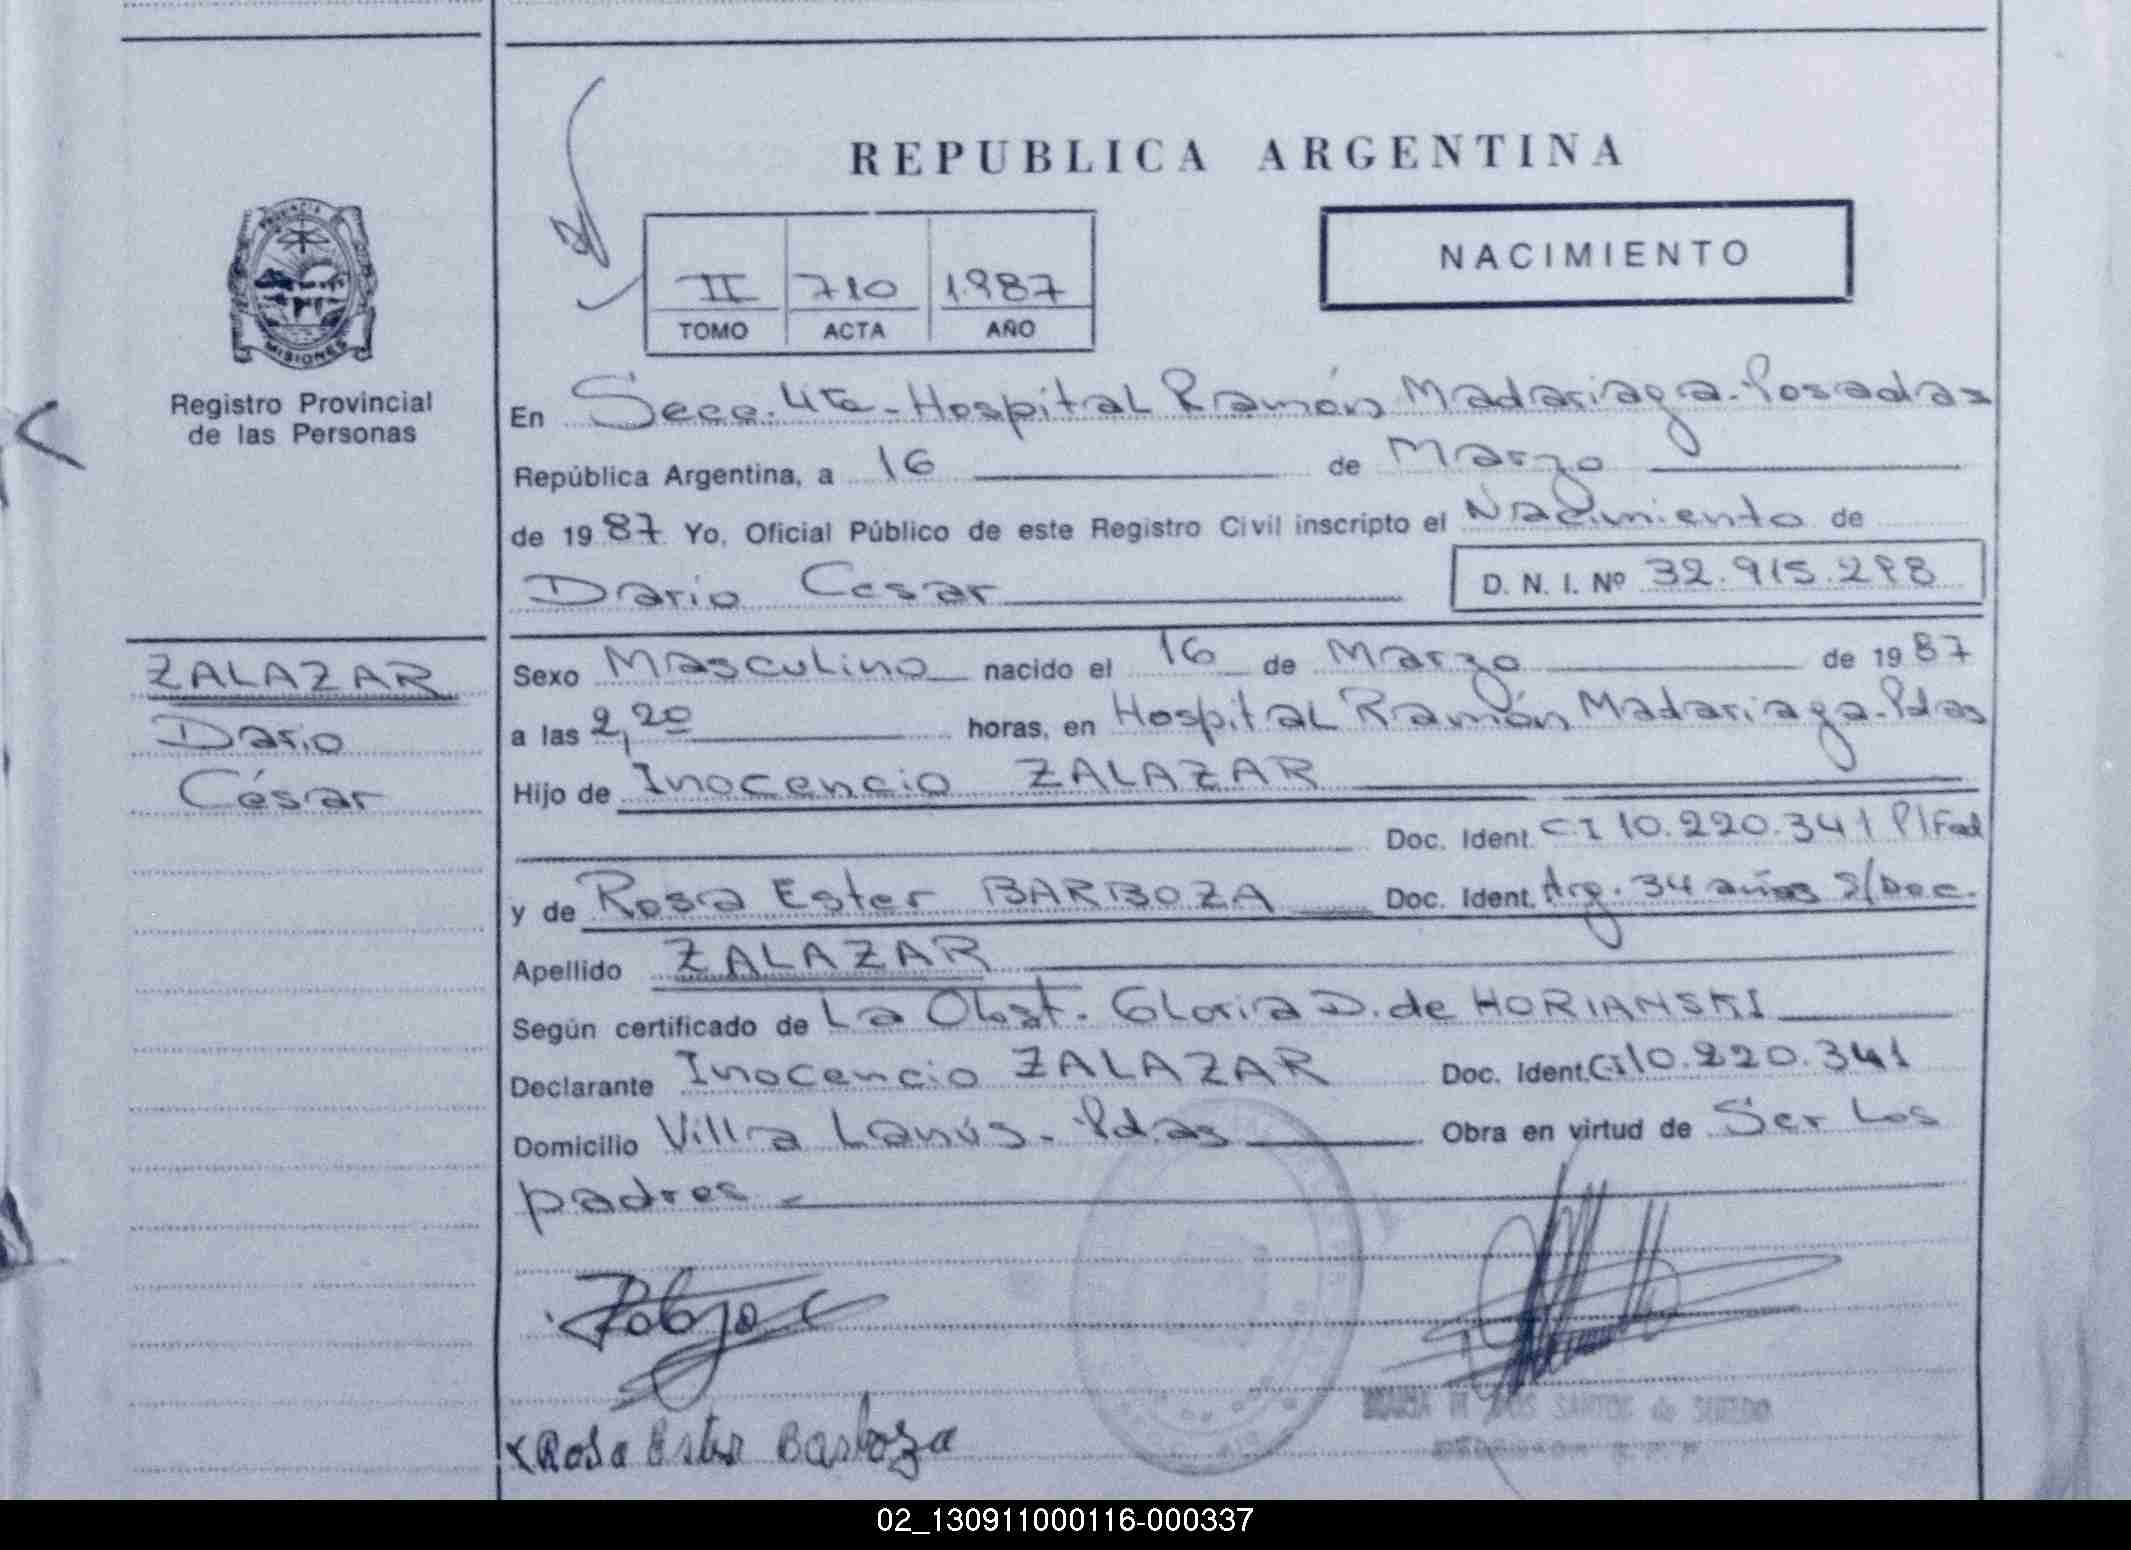 REPUBLICA ARGENTINA
NACIMIENTO
II 710 1987
TOMO ACTA AÑO
PROVINCIA
MISIONES
Registro Provincial
de las Personas
En Secc. 4ta - Hospital Ramón Madariaga - Posadas
República Argentina, a 16 de Marzo
de 1987 Yo, Oficial Público de este Registro Civil inscripto el Nacimiento de
Dario Cesar D. N. I. Nº 32.915.298
ZALAZAR
Dario
César
Sexo Masculino nacido el 16 de Marzo de 1987
a las 2,20 horas, en Hospital Ramón Madariaga - Pdas
Hijo de Inocencio ZALAZAR
Doc. Ident. C.I 10.220.341 P/Fed
y de Rosa Ester BARBOZA Doc. Ident. Arg. 34 años S/Doc.
Apellido ZALAZAR
Según certificado de La Obst. Gloria D. de HORIANSKI
Declarante Inocencio ZALAZAR Doc. Ident. CI 10.220.341
Domicilio Villa Lanús - Pdas Obra en virtud de Ser Los
padres -
x Rosa Ester Barboza
DOS SANTOS de
02_130911000116-000337